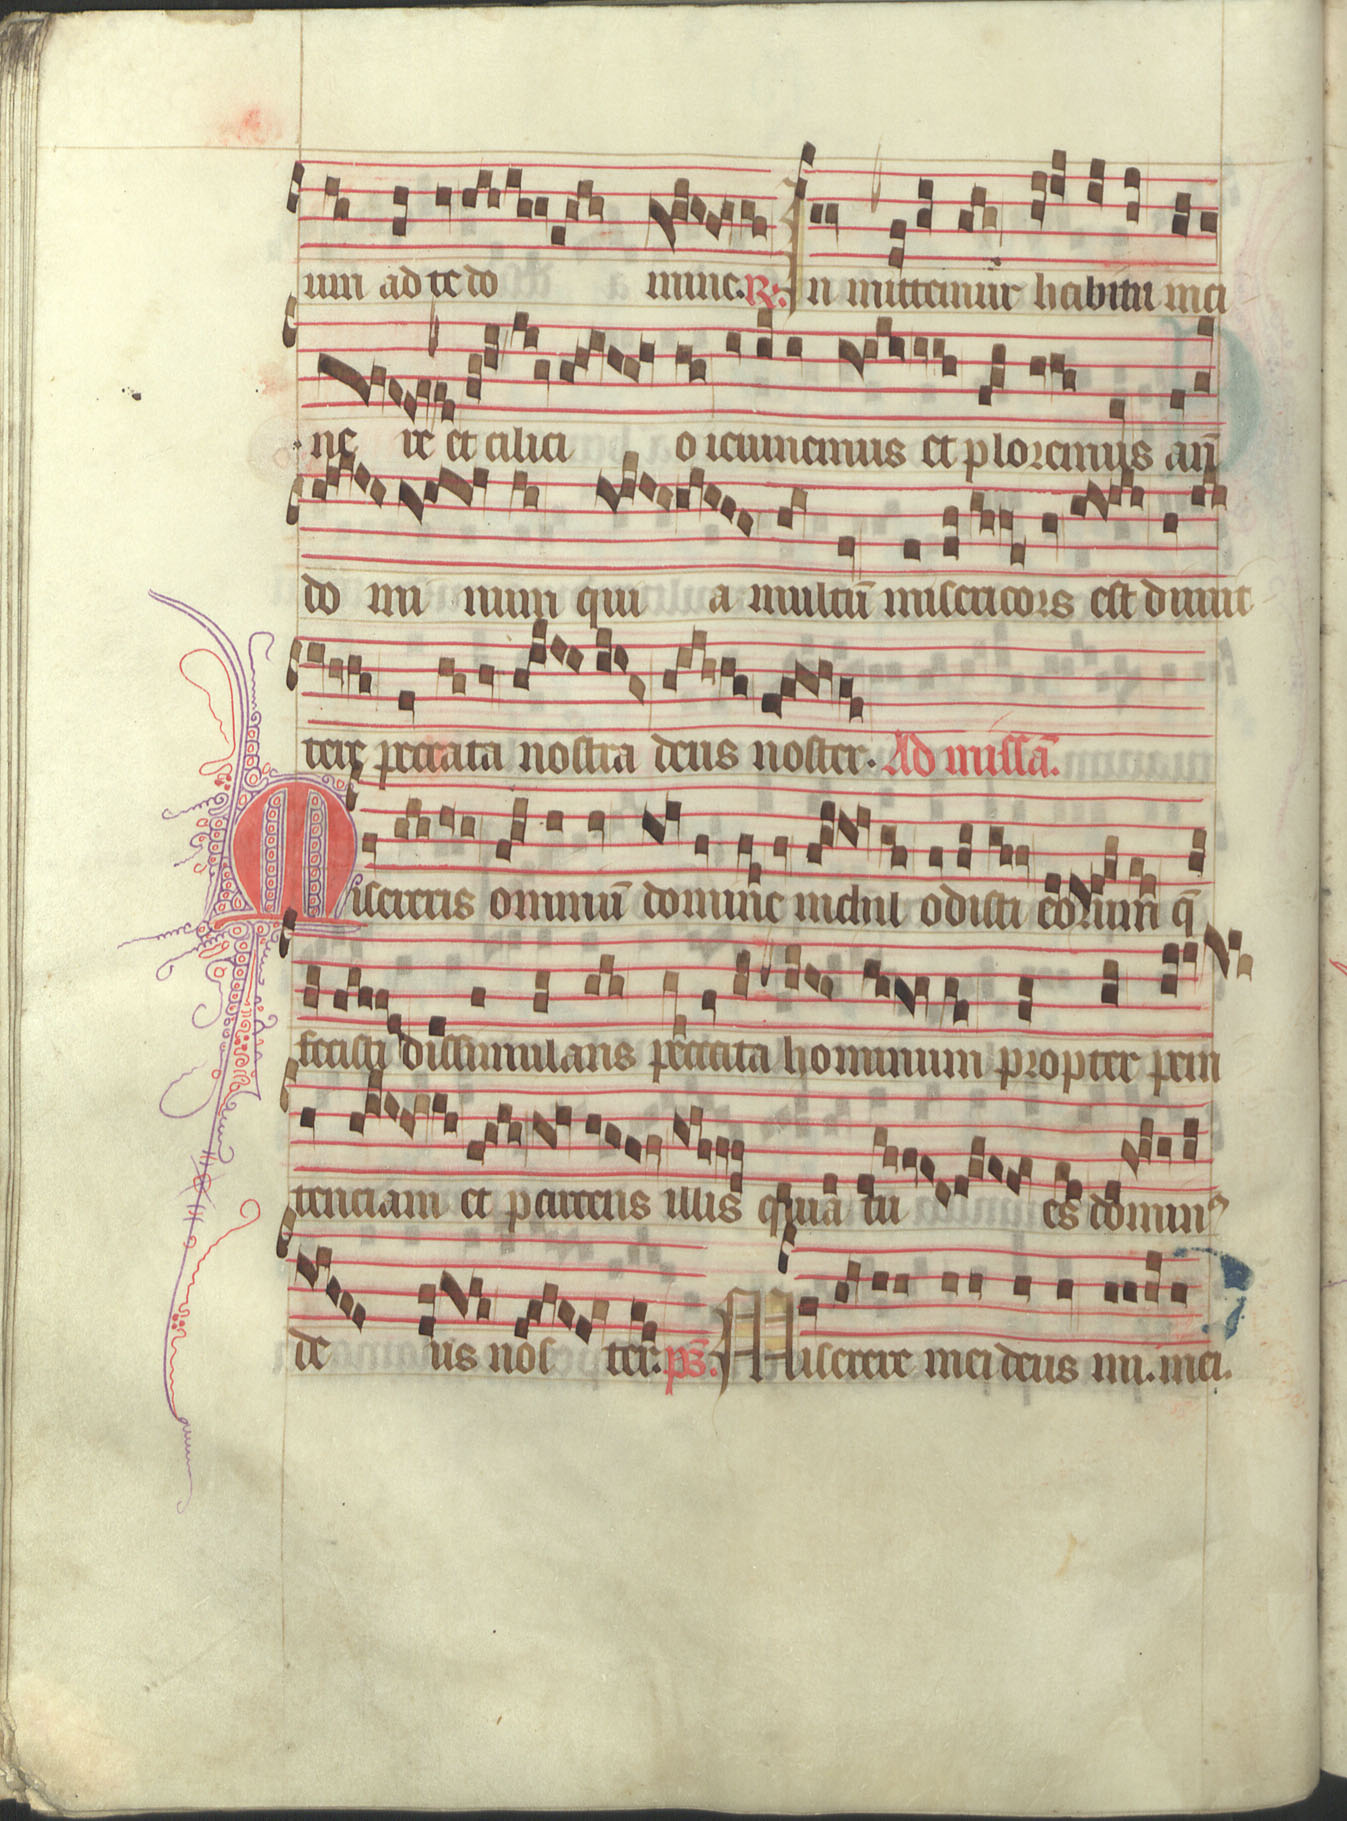 um ad te do mine. R. In mittemur habitu in ci
ne re et cilici o ieiunemus et ploremus an̄
do mi num qui a multū misericors est dimit
tere peccata nostra deus noster. Ad missā.
Misereris omniū domine nichil odisti eorum q̄
fecisti dissimulans peccata hominum propter peni
tenciam et parcens illis quia tu es dominꝰ
de us nos ter. p̄s. Miserere mei deus mi. mei.